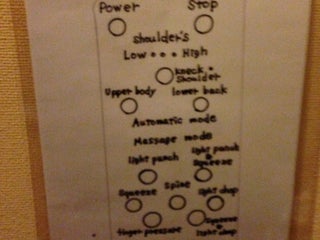 Power Stop
Shoulder's
Low • • • High
kneck •
Shoulder
Upper body lower back
Automatic mode
Massage mode
light punch light punch
&
Squeeze
Squeeze Spine light chop
finger pressure Squeeze
&
light chop